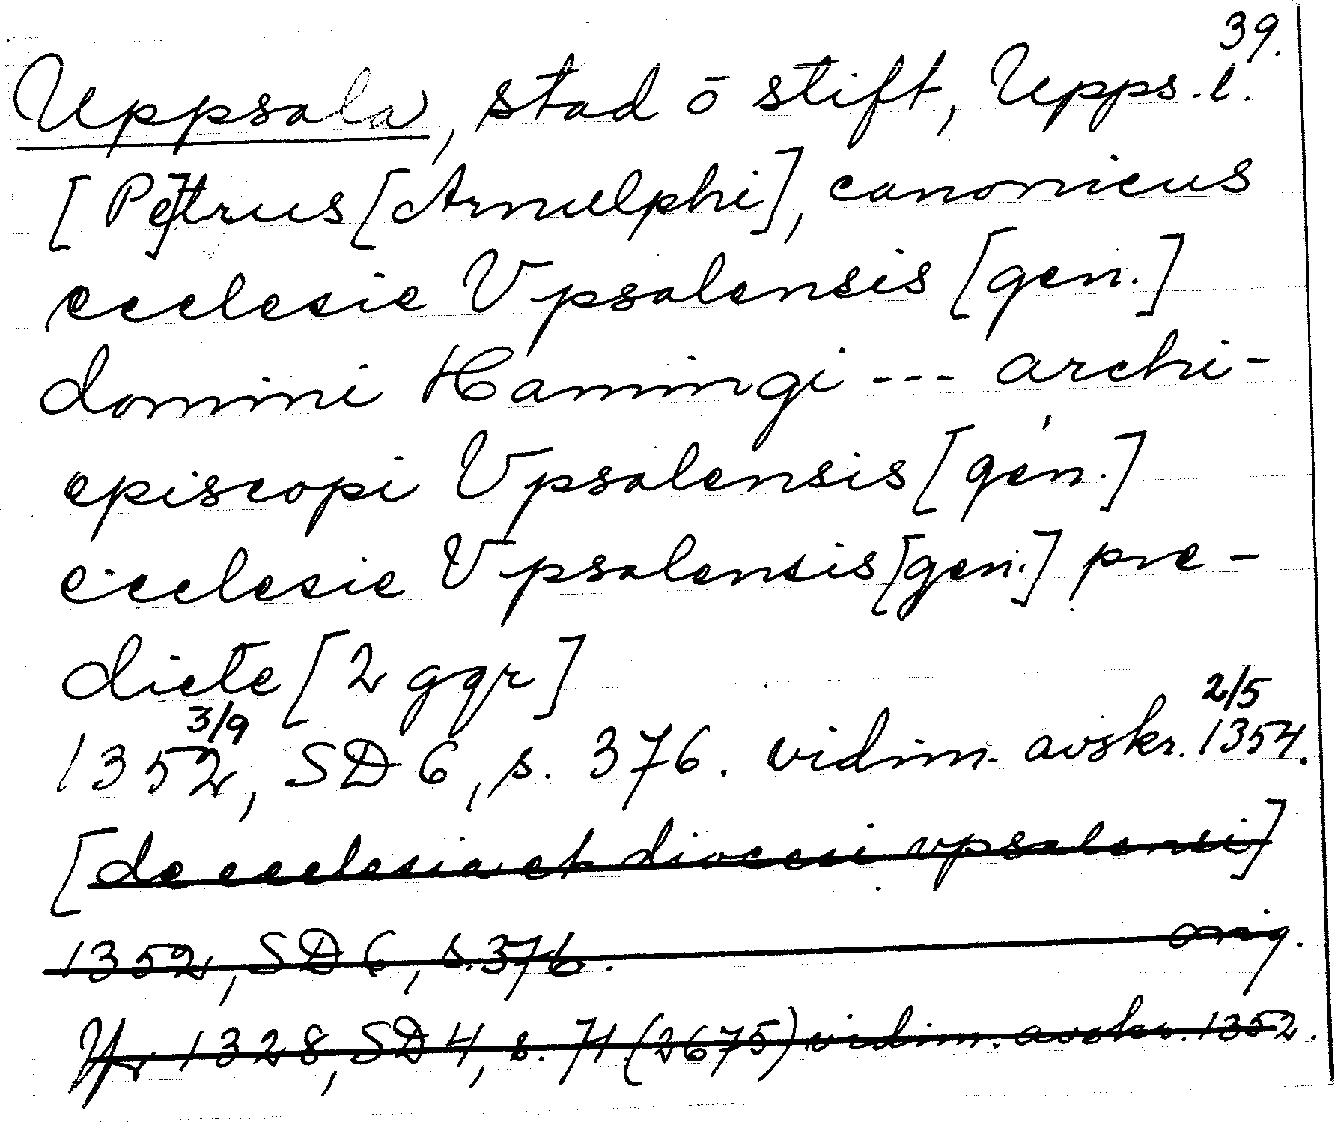 39.
Uppsala, stad ō stift, Upps. l.
[Pe]trus [Arnulphi], canonicus
ecclesie Vpsalensis [gen.]
domini Hemingi --- archi-
episcopi Vpsalensis [gen.]
ecclesie Vpsalensis [gen.] pre-
dicte [2 ggr]
3/9 2/5
1352, SD 6, s. 376. vidim. avskr. 1354.
[de ecclesia et diocesi vpsalensi]
1352, SD 6, s. 376. orig.
1328, SD 4, s. 71 (2675) vidim. avskr. 1352.